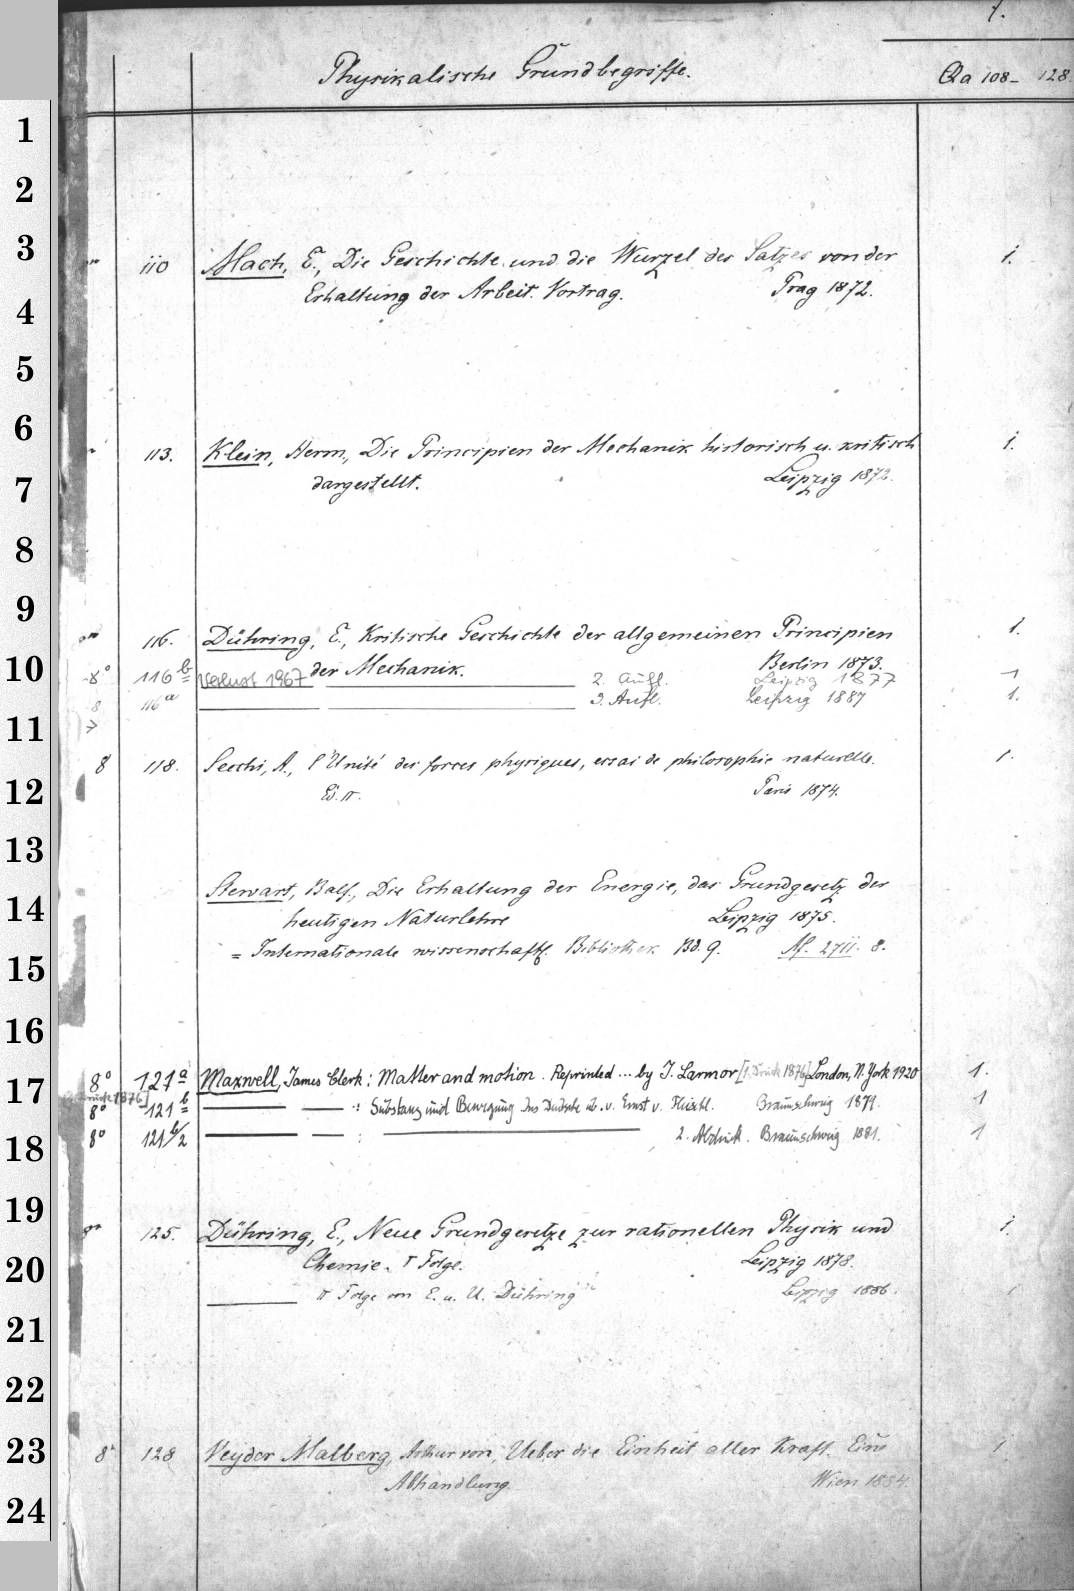 7.
Physikalische Grundbegriffe. Qa 108-128.
1
2
3 110 Mach, E., Die Geschichte und die Wurzel des Satzes von der 1.
4 Erhaltung der Arbeit. Vortrag. Prag 1872.
5
6 113. Klein, Herm., Die Principien der Mechanik historisch u. kritisch 1.
7 dargestellt. Leipzig 1872.
8
9 116. Dühring, E., Kritische Geschichte der allgemeinen Principien 1.
10 der Mechanik. Berlin 1873.
8° 116b Verlust 1967 2. Aufl. Leipzig 1877 1
8 116a 3. Aufl. Leipzig 1887 1.
11
8 118. Secchi, A., l'Unité des forces physiques, essai de philosophie naturelle. 1.
12 Éd. II. Paris 1874.
13
14 Stewart, Balf., Die Erhaltung der Energie, das Grundgesetz der
heutigen Naturlehre Leipzig 1875.
15 = Internationale wissenschaftl. Bibliothek Bd. 9. Af. 2711. 8.
16
17 8° 121a Maxwell, James Clerk: Matter and motion. Reprinted ... by J. Larmor [1. Druck 1876] London, N. York 1920 1.
8° 121b : Substanz und Bewegung Ins Deutsche üb. v. Ernst v. Fleischl. Braunschweig 1879. 1
18 8° 121b/2 : 2. Abdruck. Braunschweig 1881. 1
19 125. Dühring, E., Neue Grundgesetze zur rationellen Physik und 1.
20 Chemie. I Folge. Leipzig 1878.
II Folge von E. u. U. Dühring Leipzig 1886. 1
21
22
23 8° 128 Veyder Malberg, Arthur von, Ueber die Einheit aller Kraft. Eine 1
24 Abhandlung. Wien 1884.